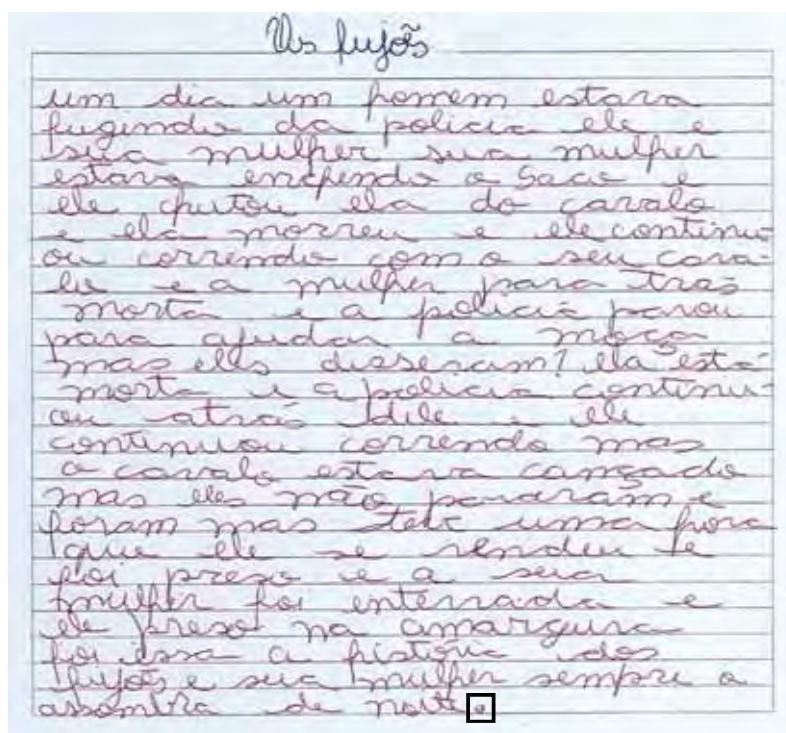 Os fujõs
um dia um homem estava
fugindo da policia ele e
sua mulher sua mulher
estava enchendo o saco e
ele chutou ela do cavalo
e ela morreu e ele continu
ou correndo com o seu cava-
lo e a mulher para tras
morta e a policia parou
para ajudar a moça
mas eles disseram! ela está
morta e a policia continu-
ou atrás dele e ele
continuou correndo mas
o cavalo estava cançado
mas eles não pararam e
foram mas teve uma hora
que ele se rendeu e
foi preso e a sua
mulher foi enterrada e
ele preso na amargura
foi essa a historia dos
fujõs e sua mulher sempre o
assombra de noite.